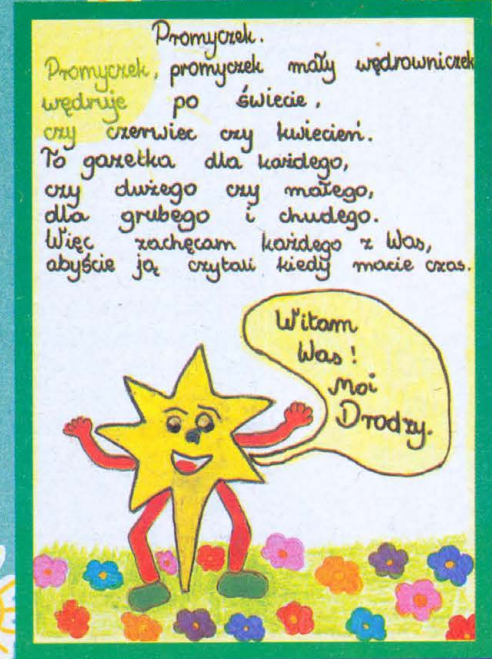 Promyczek.
Promyczek, promyczek mały wędrowniczek
wędruje po świecie,
czy czerwiec czy kwiecień.
To gazetka dla każdego,
czy dużego czy małego,
dla grubego i chudego.
Więc zachęcam każdego z Was,
abyście ją czytali kiedy macie czas.
Witam
Was!
Moi
Drodzy.